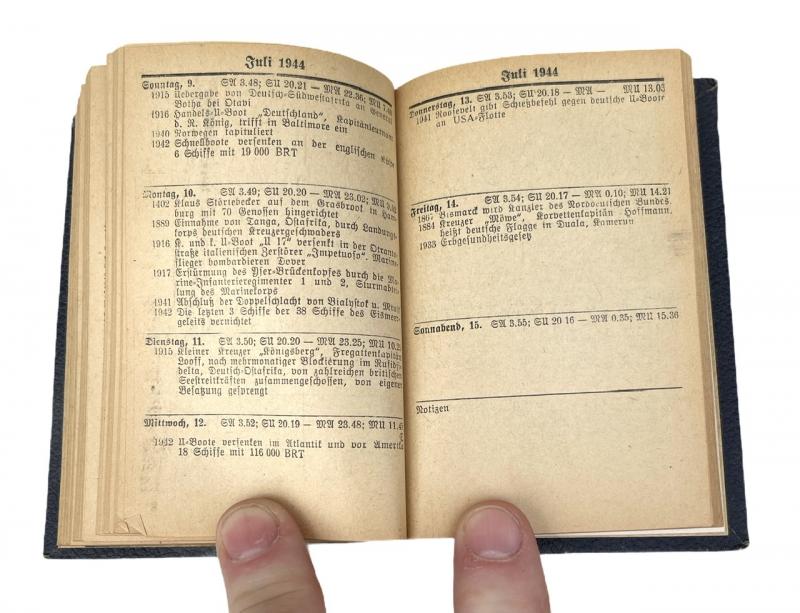 Juli 1944
Sonntag, 9. SA 3.48; SU 20.21 — MA 22.36; MU 7.
1915 Uebergabe von Deutsch-Südwestafrika an General
Botha bei Otavi
1916 Handels-U-Boot „Deutschland", Kapitänleutnant
d. R. König, trifft in Baltimore ein
1940 Norwegen kapituliert
1942 Schnellboote versenken an der englischen Küste
6 Schiffe mit 19 000 BRT
Montag, 10. SA 3.49; SU 20.20 — MA 23.02; MU
1402 Klaus Störtebecker auf dem Grasbrook in Ham-
burg mit 70 Genossen hingerichtet
1889 Einnahme von Tanga, Ostafrika, durch Landungs-
korps deutschen Kreuzergeschwaders
1916 K. und k. U-Boot „U 17" versenkt in der Otranto-
straße italienischen Zerstörer „Impetuoso". Marine-
flieger bombardieren Dover
1917 Erstürmung des Yser-Brückenkopfes durch die Ma-
rine-Infanterieregimenter 1 und 2, Sturmabtei-
lung des Marinekorps
1941 Abschluß der Doppelschlacht von Bialystok u. Minsk
1942 Die letzten 3 Schiffe der 38 Schiffe des Eismeer-
geleits vernichtet
Dienstag, 11. SA 3.50; SU 20.20 — MA 23.25; MU 10.2
1915 Kleiner Kreuzer „Königsberg", Fregattenkapitän
Looff, nach mehrmonatiger Blockierung im Rufidji-
delta, Deutsch-Ostafrika, von zahlreichen britischen
Seestreitkräften zusammengeschossen, von eigener
Besatzung gesprengt
Mittwoch, 12. SA 3.52; SU 20.19 — MA 23.48; MU 11.4
1942 U-Boote versenken im Atlantik und vor Amerika
18 Schiffe mit 116 000 BRT
Juli 1944
Donnerstag, 13. SA 3.53; SU 20.18 — MA — MU 13.03
1941 Roosevelt gibt Schießbefehl gegen deutsche U-Boote
an USA-Flotte
Freitag, 14. SA 3.54; SU 20.17 — MA 0.10; MU 14.21
1867 Bismarck wird Kanzler des Norddeutschen Bundes
1884 Kreuzer „Möwe", Korvettenkapitän Hoffmann,
heißt deutsche Flagge in Duala, Kamerun
1933 Erbgesundheitsgesetz
Sonnabend, 15. SA 3.55; SU 20 16 — MA 0.35; MU 15.36
Notizen